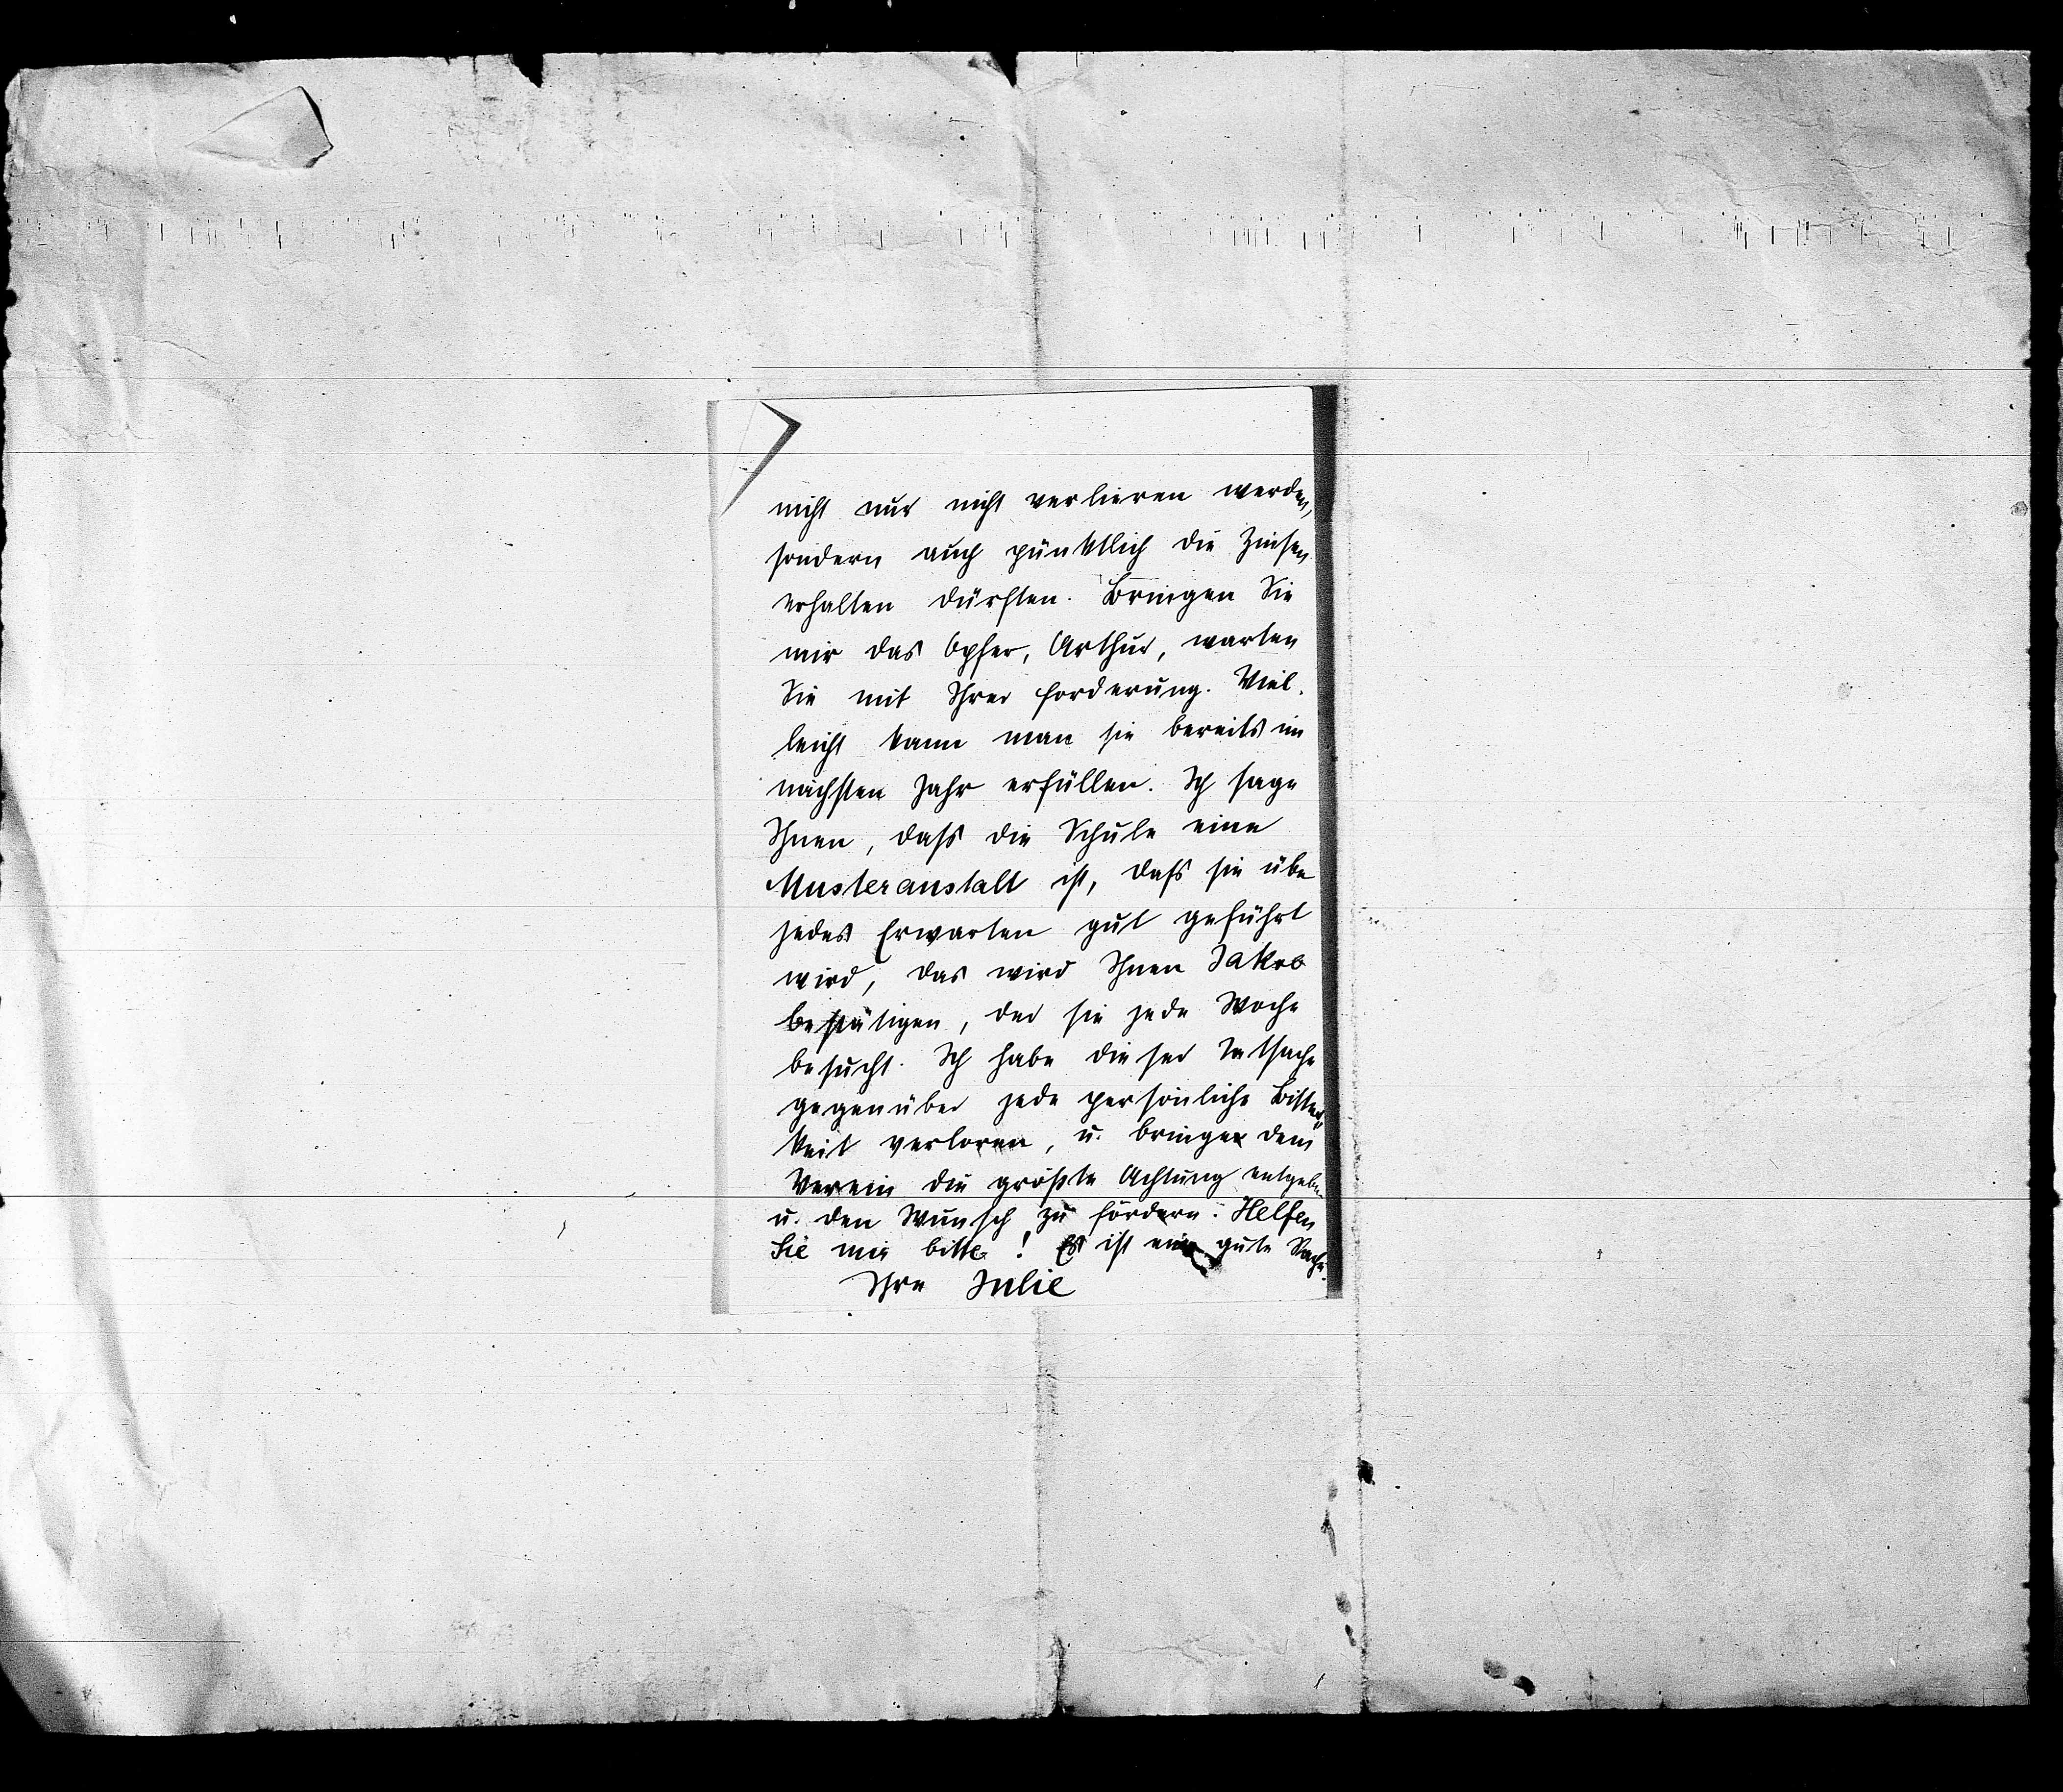 nicht nur nicht verlieren werden,
sondern auch pünktlich die Zinsen
erhalten dürften. Bringen Sie
mir das Opfer, Arthur, warten
Sie mit Ihrer Forderung. Viel-
leicht kann man sie bereits im
nächsten Jahr erfüllen. Ich sage
Ihnen, dass die Schule eine
Musteranstalt ist, dass sie über
jedes Erwarten gut geführt
wird, das wird Ihnen Jakob
bestätigen, der sie jede Woche
besucht. Ich habe dieser Tatsache
gegenüber jede persönliche Bitter-
keit verloren, u. bringe dem
Verein die größte Achtung entgegen
u. den Wunsch zu fördern. Helfen
Sie mir bitte! Es ist eine gute Sache.
Ihre Julie